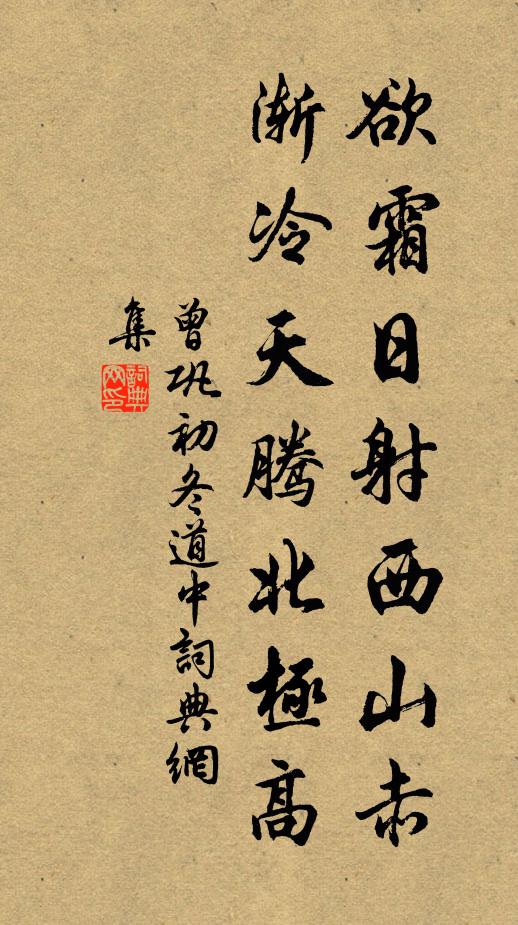 欲霜日射西山赤
漸冷天騰北極高
曾鞏初冬道中詞典網
集
詞典
网印